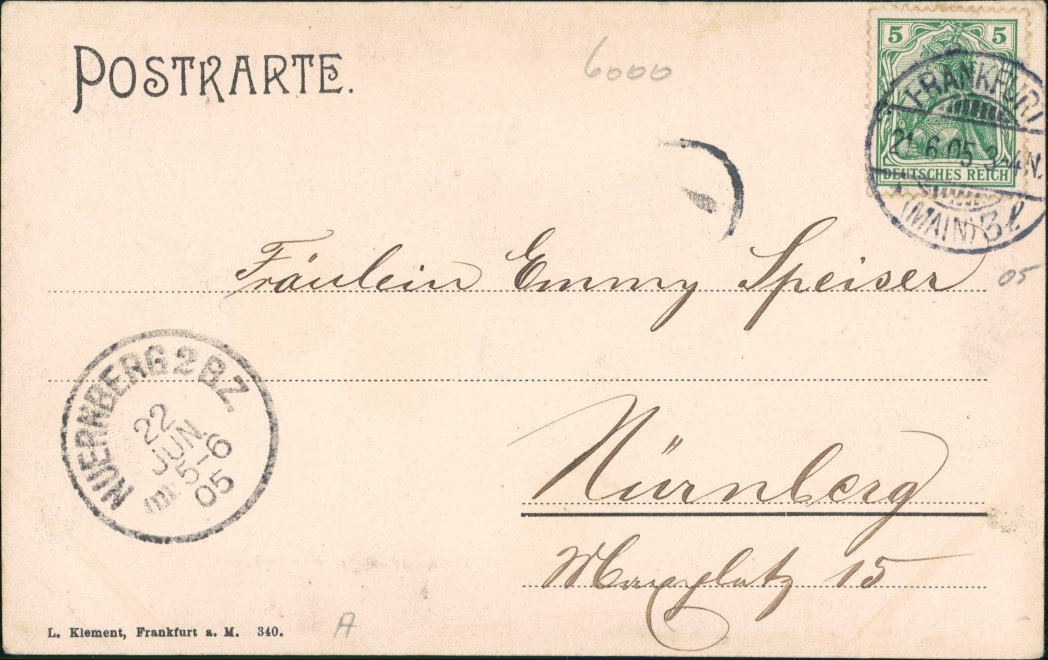 POSTKARTE.
6000
5 5
DEUTSCHES REICH
FRANKFURT
21.6.05.3-4N.
(MAIN) 3 l
Fräulein Emmy Speiser
05
NUERNBERG 2 B.Z.
22
JUN
5-6
05
Nürnberg
Maxplatz 15
L. Klement, Frankfurt a. M. 340.
A